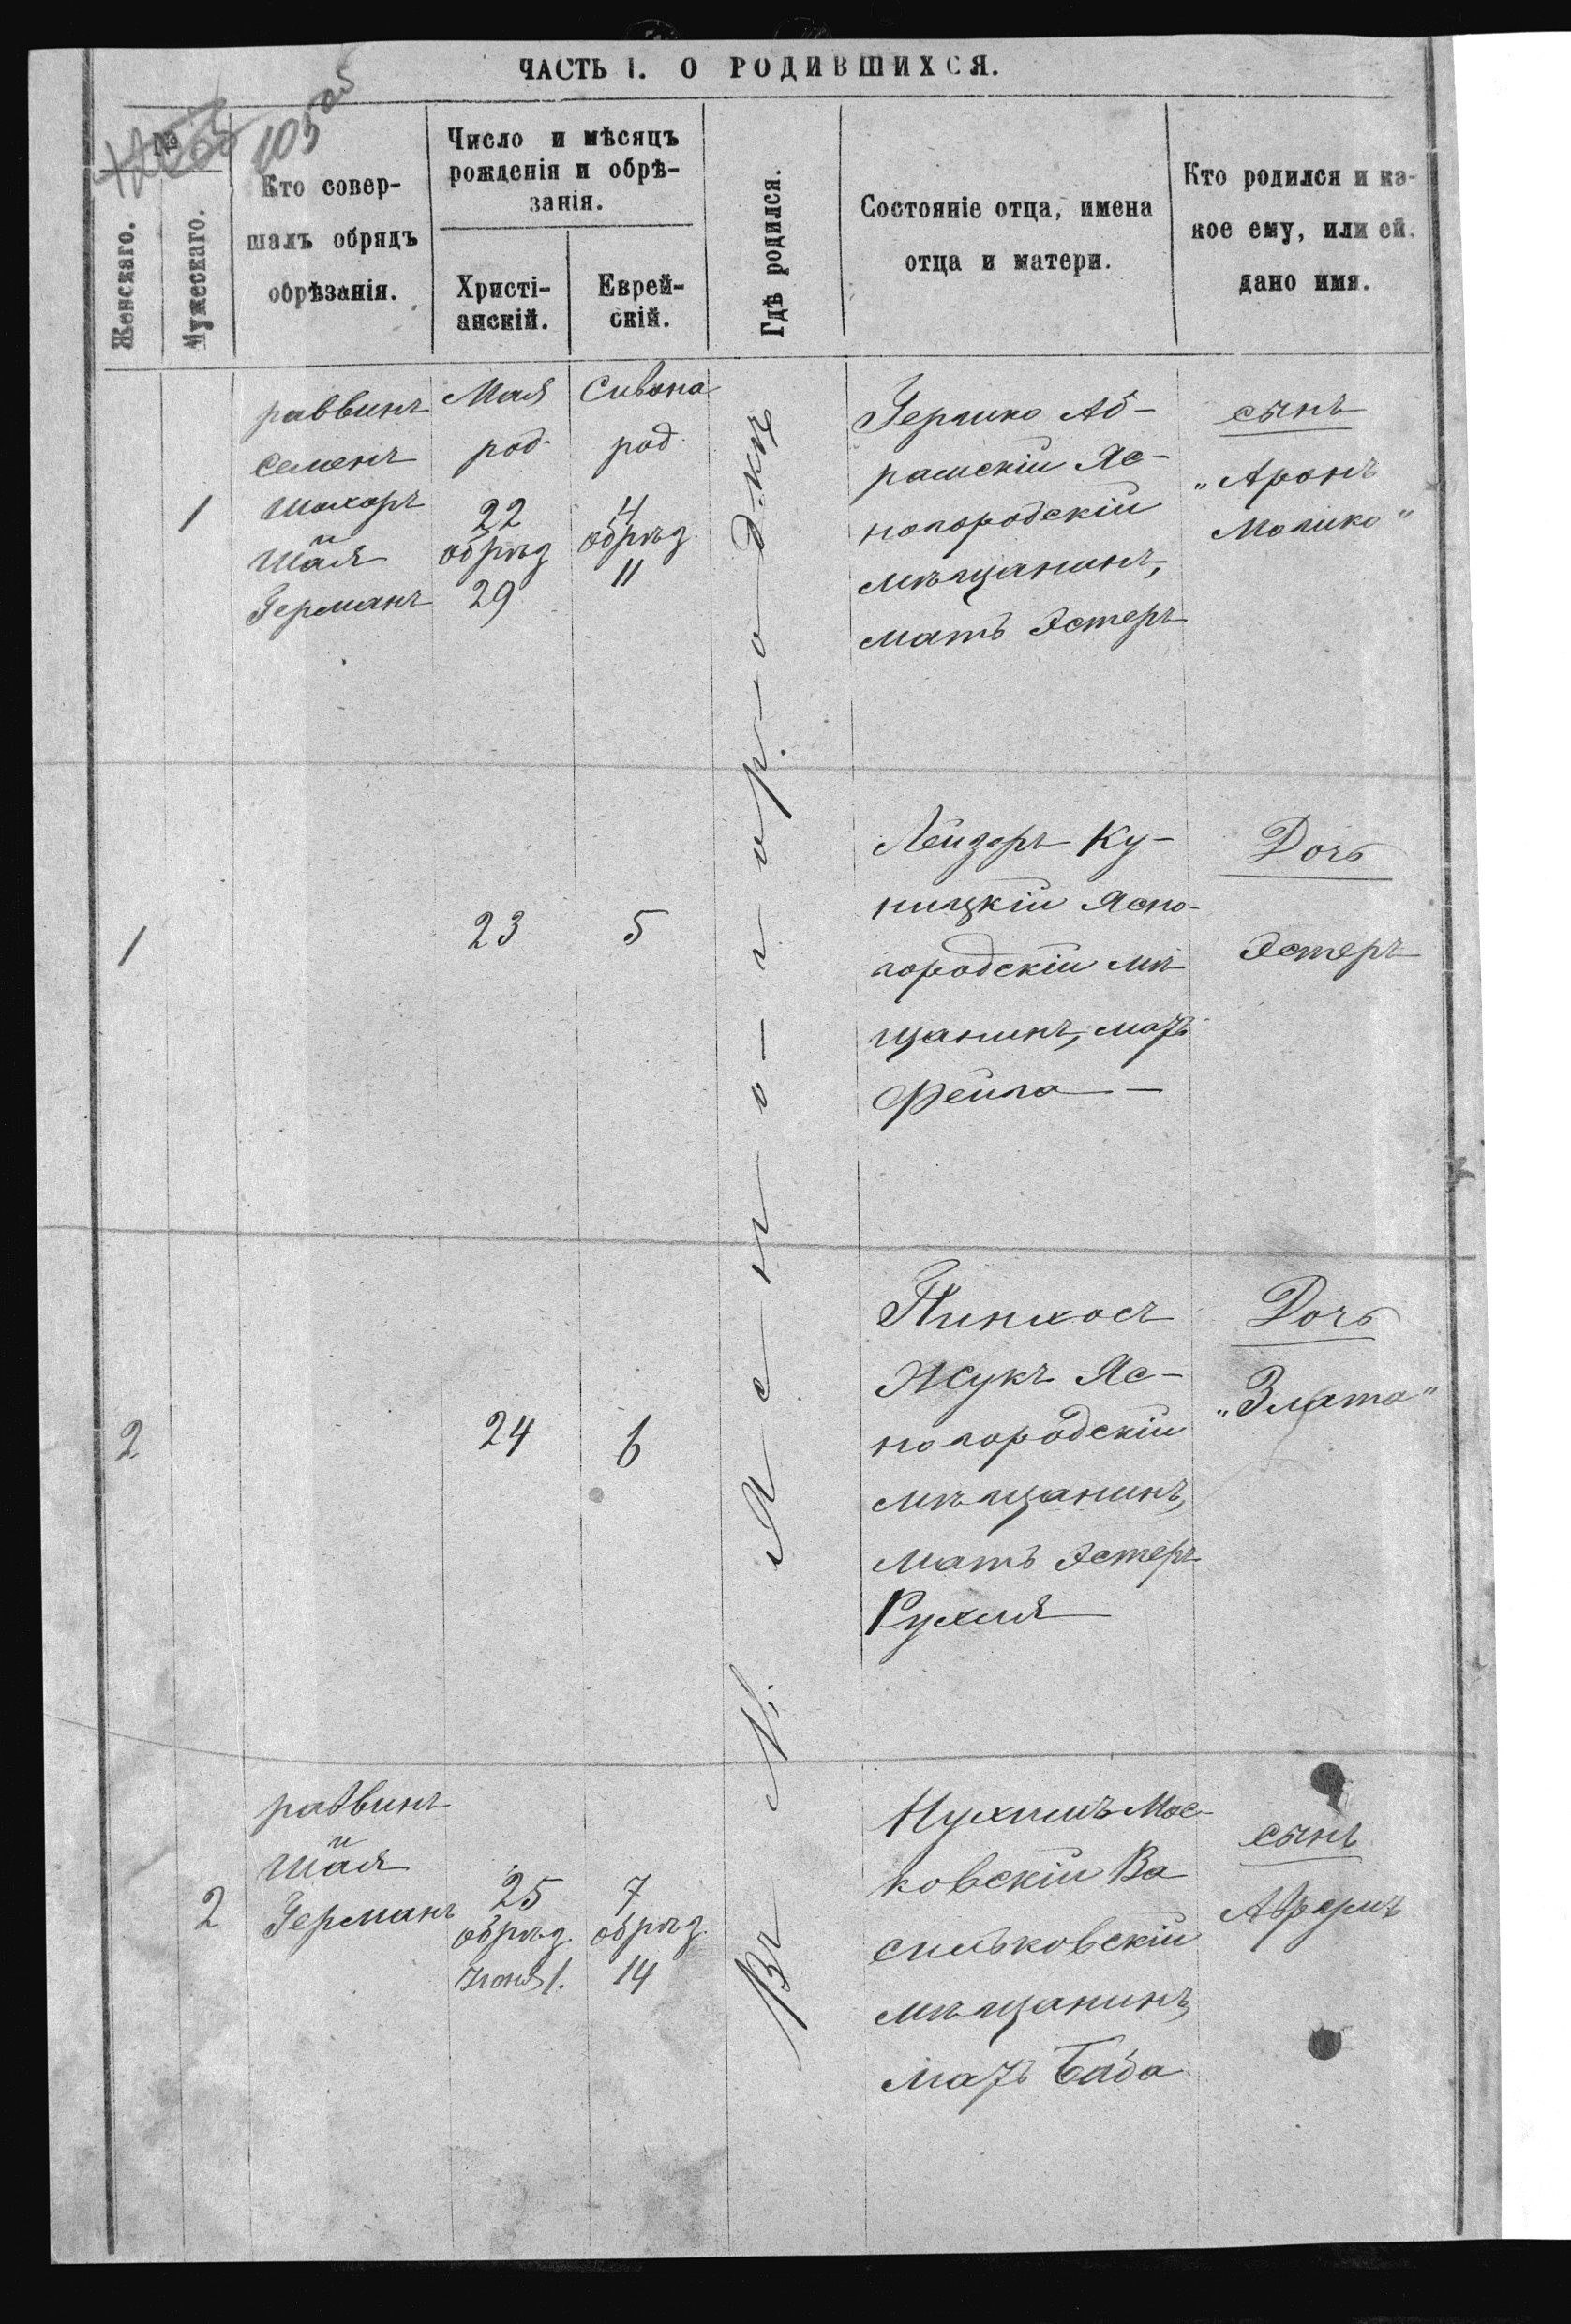 ЧАСТЬ I. О РОДИВШИХСЯ.
№
105 об
Женскаго.
Мужескаго.
Кто совер-
шалъ обрядъ
обрѣзанія.
Число и мѣсяцъ
рожденія и обрѣ-
занія.
Христі-
анскій.
Еврей-
скій.
Гдѣ родился.
Состояніе отца, имена
отца и матери.
Кто родился и ка-
кое ему, или ей.
дано имя.
1
раввинъ
Семенъ
Шохоръ
и
Шая
Германъ
Мая
род.
22
обрѣз
29
Сивона
род.
4
обрѣз.
11
Въ м. Ясно-гор-о-дкѣ
Гершко Аб-
рамскій Яс-
ногородскій
мѣщанинъ,
мать Эстеръ
сынъ
„Аронъ
Мошко"
1
23
5
Лейзоръ Ку-
ницкій Ясно-
городскій мѣ
щанинъ, мать
Фейга —
Дочь
Эстеръ
2
24
6
Пинхосъ
Жукъ Яс-
ногородскій
мѣщанинъ,
мать Эстеръ
Рухля
Дочь
„Злата"
2
раввинъ
и
Шая
Германъ
25
обрѣз.
Іюня 1.
7
обрѣз.
14
Нухимъ Мос-
ковскій Ва
сильковскій
мѣщанинъ,
мать Баба
сынъ
Аврумъ